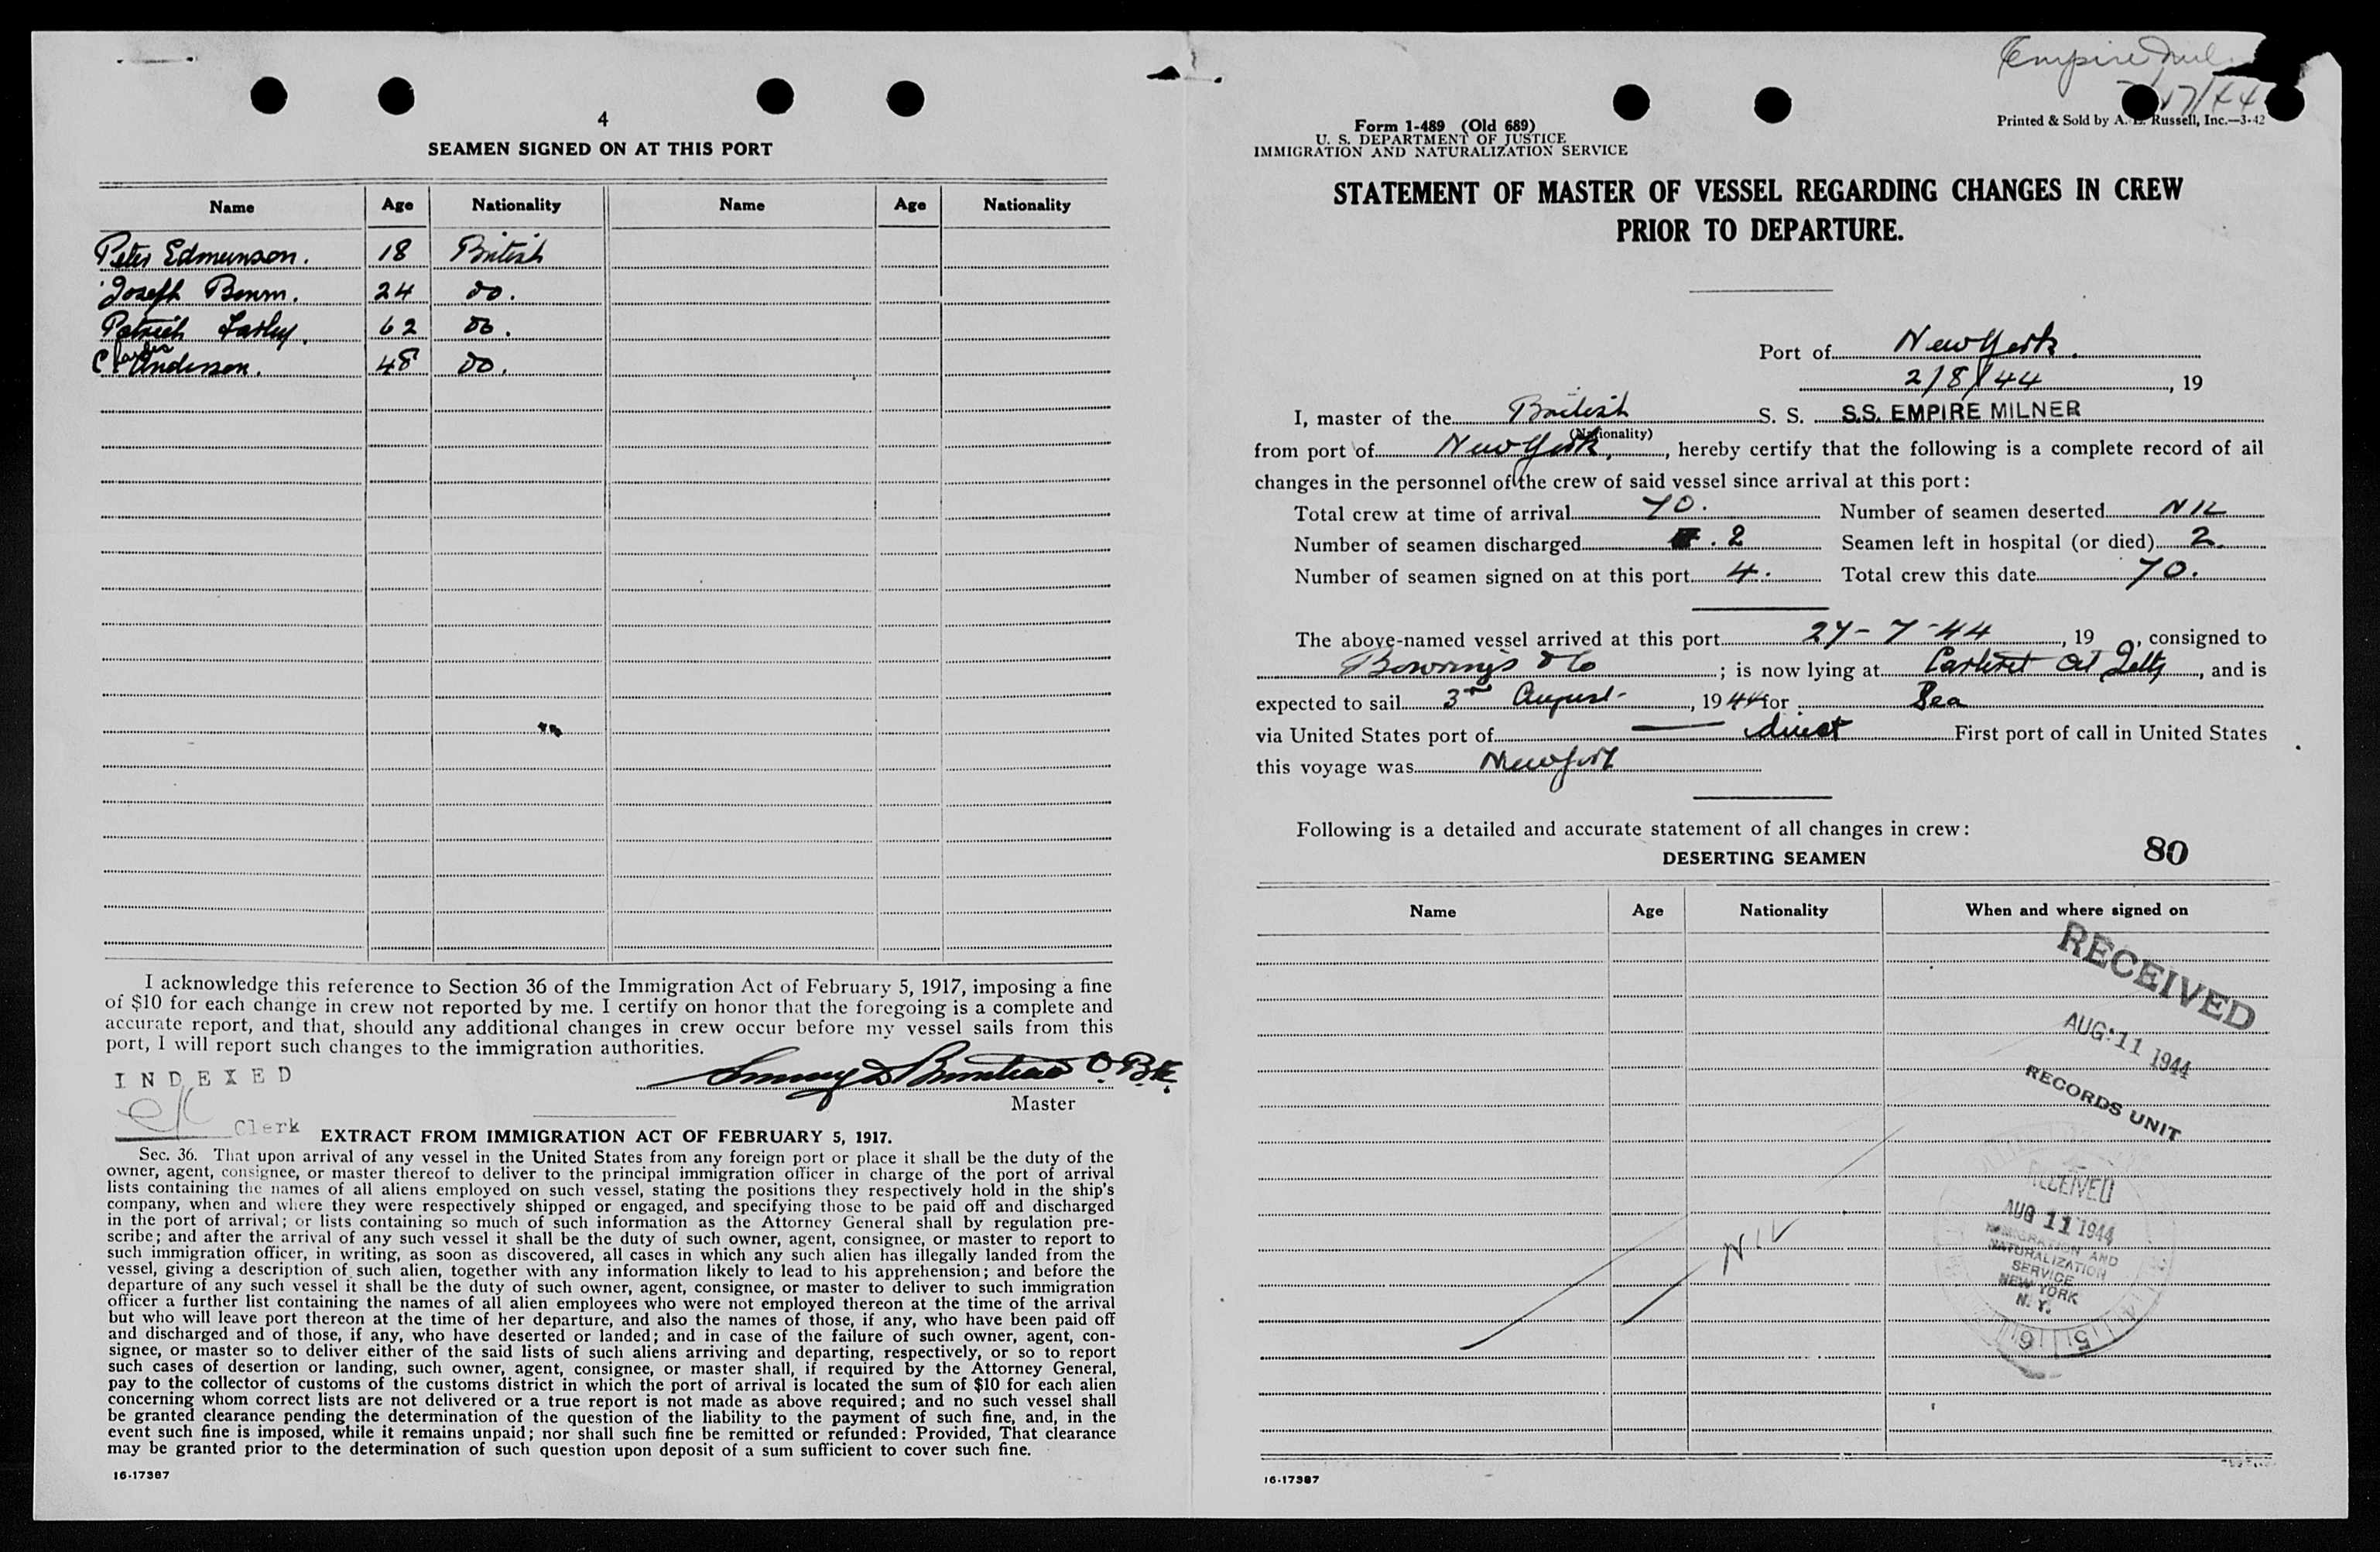 4
SEAMEN SIGNED ON AT THIS PORT
Name Age Nationality Name Age Nationality
Peter Edmunson. 18 British
Joseph 24 do.
Patrick 62 do.
Charles Anderson. 48 do.
I acknowledge this reference to Section 36 of the Immigration Act of February 5, 1917, imposing a fine
of $10 for each change in crew not reported by me. I certify on honor that the foregoing is a complete and
accurate report, and that, should any additional changes in crew occur before my vessel sails from this
port, I will report such changes to the immigration authorities.
O.B.E.
Master
INDEXED
Clerk
EXTRACT FROM IMMIGRATION ACT OF FEBRUARY 5, 1917.
Sec. 36. That upon arrival of any vessel in the United States from any foreign port or place it shall be the duty of the
owner, agent, consignee, or master thereof to deliver to the principal immigration officer in charge of the port of arrival
lists containing the names of all aliens employed on such vessel, stating the positions they respectively hold in the ship's
company, when and where they were respectively shipped or engaged, and specifying those to be paid off and discharged
in the port of arrival; or lists containing so much of such information as the Attorney General shall by regulation pre-
scribe; and after the arrival of any such vessel it shall be the duty of such owner, agent, consignee, or master to report to
such immigration officer, in writing, as soon as discovered, all cases in which any such alien has illegally landed from the
vessel, giving a description of such alien, together with any information likely to lead to his apprehension; and before the
departure of any such vessel it shall be the duty of such owner, agent, consignee, or master to deliver to such immigration
officer a further list containing the names of all alien employees who were not employed thereon at the time of the arrival
but who will leave port thereon at the time of her departure, and also the names of those, if any, who have been paid off
and discharged and of those, if any, who have deserted or landed; and in case of the failure of such owner, agent, con-
signee, or master so to deliver either of the said lists of such aliens arriving and departing, respectively, or so to report
such cases of desertion or landing, such owner, agent, consignee, or master shall, if required by the Attorney General,
pay to the collector of customs of the customs district in which the port of arrival is located the sum of $10 for each alien
concerning whom correct lists are not delivered or a true report is not made as above required; and no such vessel shall
be granted clearance pending the determination of the question of the liability to the payment of such fine, and, in the
event such fine is imposed, while it remains unpaid; nor shall such fine be remitted or refunded: Provided, That clearance
may be granted prior to the determination of such question upon deposit of a sum sufficient to cover such fine.
16-17387
Empire Mil
17/44
Printed & Sold by A. E. Russell, Inc.—3-42
Form 1-489 (Old 689)
U. S. DEPARTMENT OF JUSTICE
IMMIGRATION AND NATURALIZATION SERVICE
STATEMENT OF MASTER OF VESSEL REGARDING CHANGES IN CREW
PRIOR TO DEPARTURE.
Port of New York.
2/8/44, 19
I, master of the British S. S. S.S. EMPIRE MILNER
(Nationality)
from port of New York, , hereby certify that the following is a complete record of all
changes in the personnel of the crew of said vessel since arrival at this port:
Total crew at time of arrival 70. Number of seamen deserted NIL
Number of seamen discharged 2 Seamen left in hospital (or died) 2
Number of seamen signed on at this port 4. Total crew this date 70.
The above-named vessel arrived at this port 27-7-44, 19 , consigned to
Bowrings & Co ; is now lying at Carteret Oil Jetty, and is
expected to sail 3rd August, 1944 for Sea
via United States port of — direct First port of call in United States
this voyage was Newport
Following is a detailed and accurate statement of all changes in crew:
80
DESERTING SEAMEN
Name Age Nationality When and where signed on
RECEIVED
AUG 11 1944
RECORDS UNIT
NIL
RECEIVED
AUG 11 1944
IMMIGRATION AND
NATURALIZATION
SERVICE
NEW YORK
N. Y.
6 5 4
16-17387